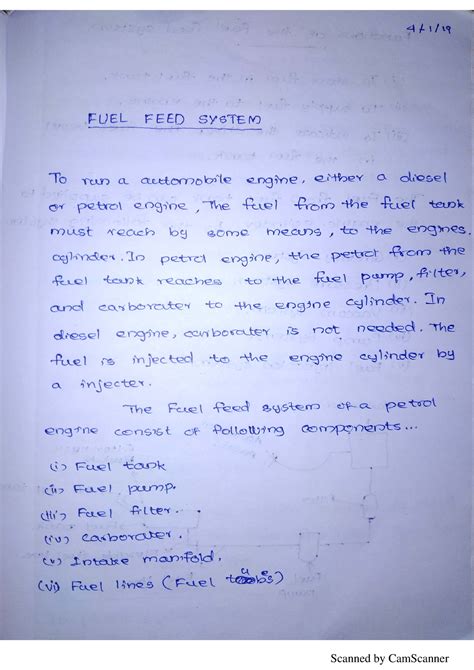 4/1/19
FUEL FEED SYSTEM
To run a automobile engine, either a diesel
or petrol engine, The fuel from the fuel tank
must reach by some means, to the engines
cylinder. In petrol engine, the petrol from the
fuel tank reaches to the fuel pump, filter,
and carborater to the engine cylinder. In
diesel engine, carborater is not needed. The
fuel is injected to the engine cylinder by
a injecter.
The Fuel feed system of a petrol
engine consist of following components...
(i) Fuel tank
(ii) Fuel pump.
(iii) Fuel filter.
(iv) carborater.
(v) Intake manifold.
(vi) Fuel lines (Fuel tubes)
Scanned by CamScanner